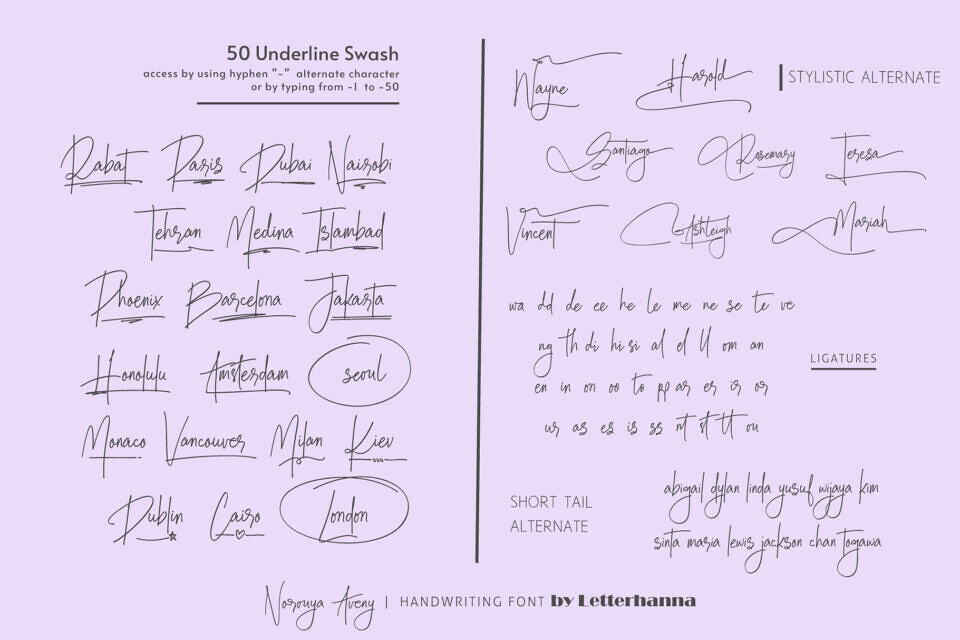 50 Underline Swash
access by using hyphen "-" alternate character
or by typing from -1 to -50
Rabat Paris Dubai Nairobi
Tehran Medina Islambad
Phoenix Barcelona Jakarta
Honolulu Amsterdam seoul
Monaco Vancouver Milan Kiev
Dublin Cairo London
Wayne Harold STYLISTIC ALTERNATE
Santiago Rosemary Teresa
Vincent Ashleigh Mariah
wa dd de ee he le me ne se te ve
ng th di hi si al el ll om an
LIGATURES
en in on oo to pp ar er ir or
ur as es is ss nt st tt ou
SHORT TAIL
ALTERNATE
abigail dylan linda yusuf wijaya kim
sinta maria lewis jackson chan togawa
Norouya Aveny | HANDWRITING FONT by Letterhanna